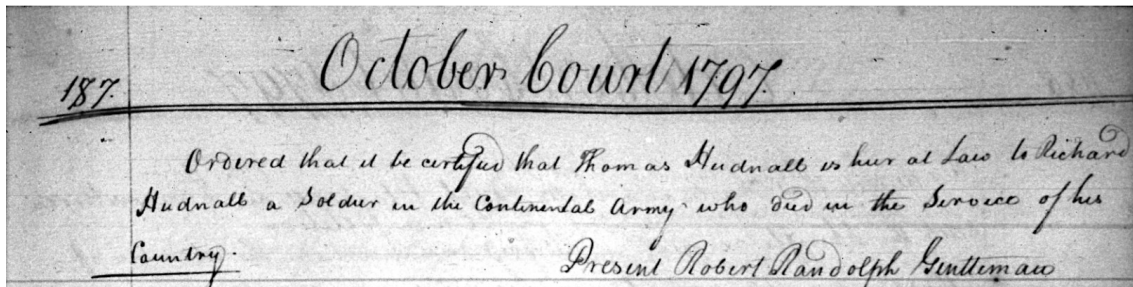 October Court 1797.
187.
Ordered that it be certified that Thomas Hudnall is heir at Law to Richard
Hudnall a Soldier in the Continental Army who died in the Service of his
Country.
Present Robert Randolph Gentleman